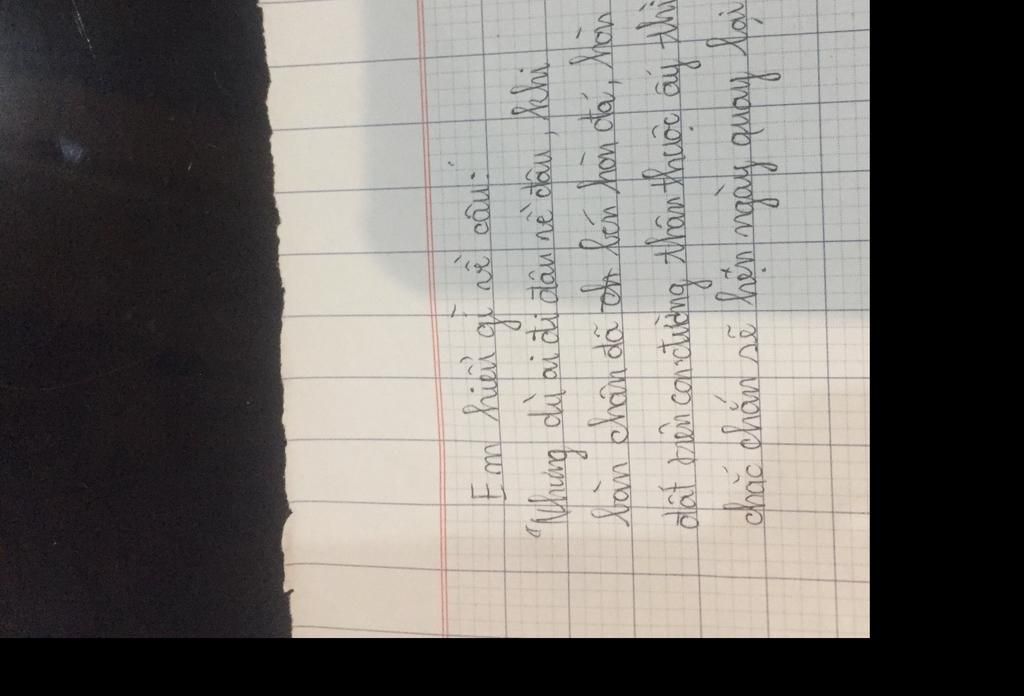 Em hiểu gì về câu:
"Nhưng dù ai đi đâu về đâu, khi
bàn chân đã bén hòn đá, hòn
đất trên con đường thân thuộc ấy thì
chắc chắn sẽ hẹn ngày quay lại